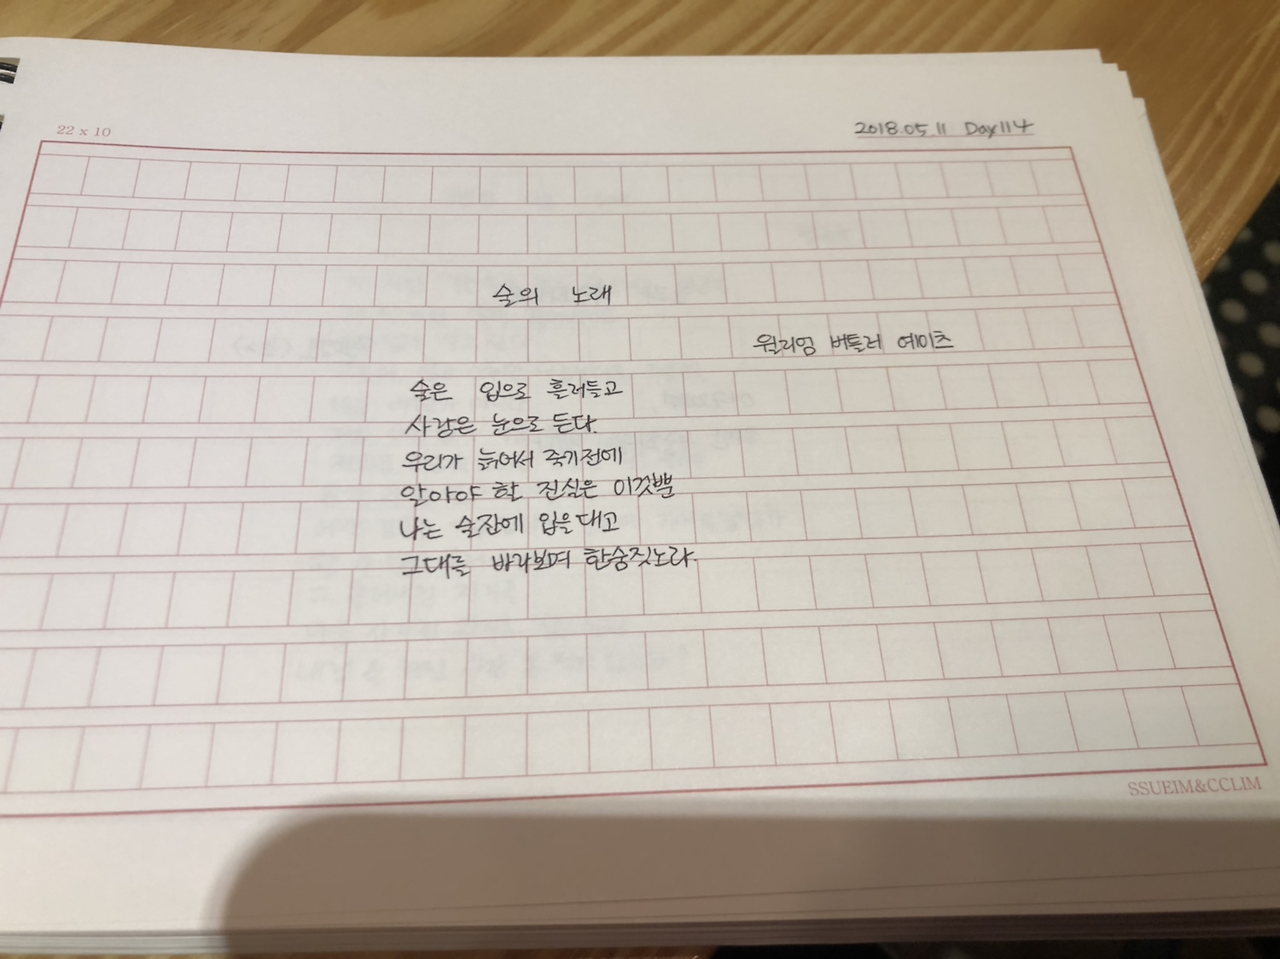 22 x 10
2018.05.11 Day114
술의 노래
윌리엄 버틀러 예이츠
술은 입으로 흘러들고
사랑은 눈으로 든다.
우리가 늙어서 죽기전에
알아야 할 진실은 이것뿐
나는 술잔에 입을대고
그대를 바라보며 한숨짓노라.
SSUEIM&CCLIM